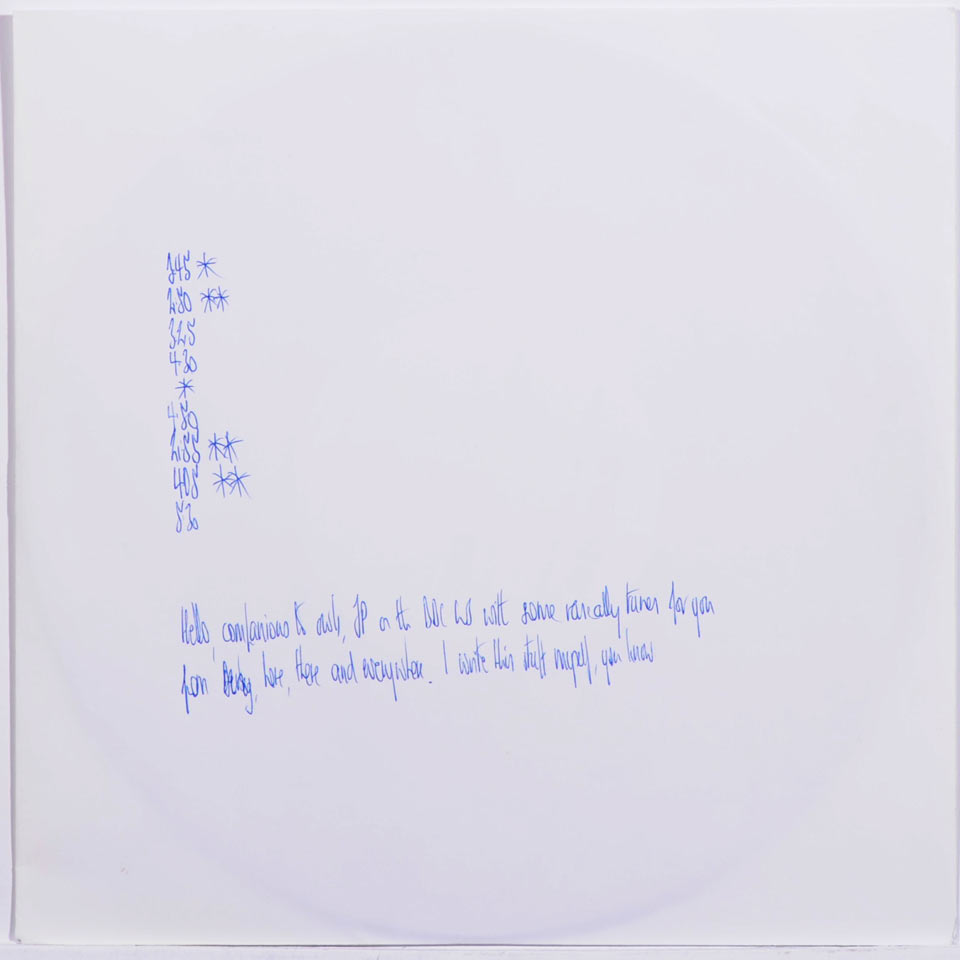 345 *
250 **
325
430
*
450
255 **
405 **
530
Hello, companions to owls, JP on the BBC WS with some rascally tunes for you
from here, there and everywhere. I write this stuff myself, you know